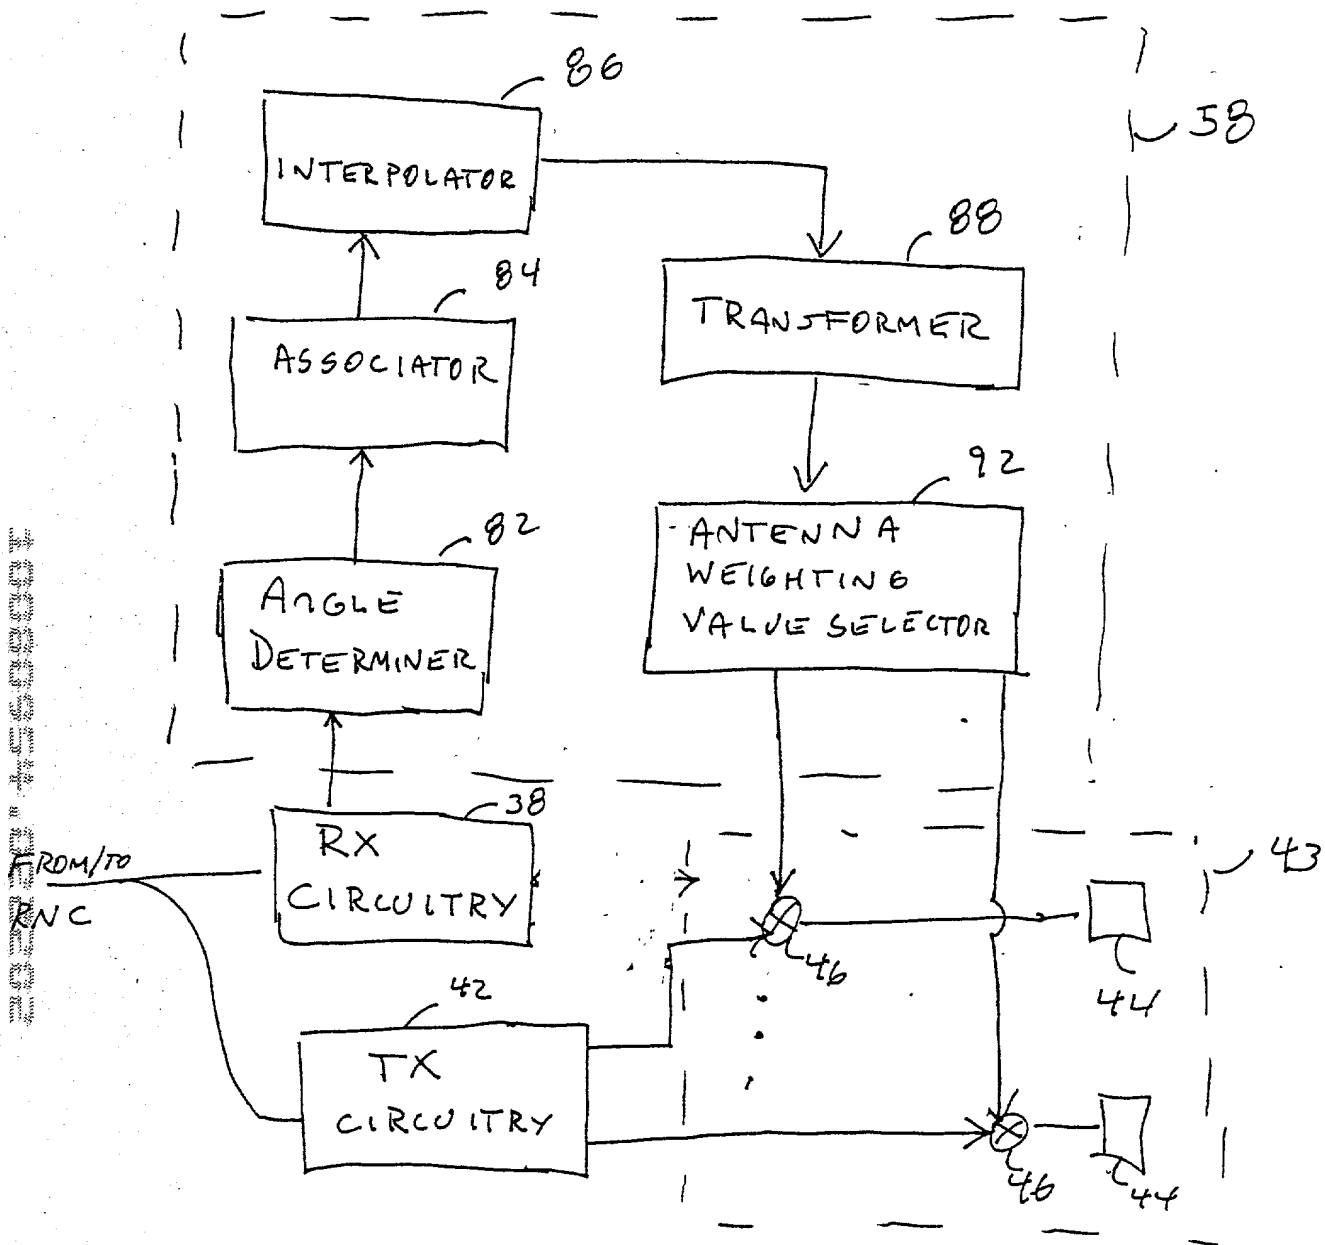 86
58
INTERPOLATOR
88
84
TRANSFORMER
ASSOCIATOR
92
82
ANTENNA
WEIGHTING
VALUE SELECTOR
ANGLE
DETERMINER
38
RX
CIRCUITRY
FROM/TO
RNC
43
46
44
42
TX
CIRCUITRY
46
44